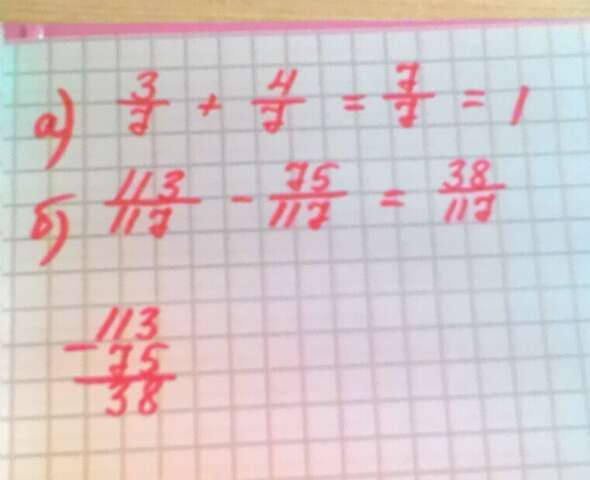 а) 3/7 + 4/7 = 7/7 = 1
б) 113/117 - 75/117 = 38/117
113
- 75
38